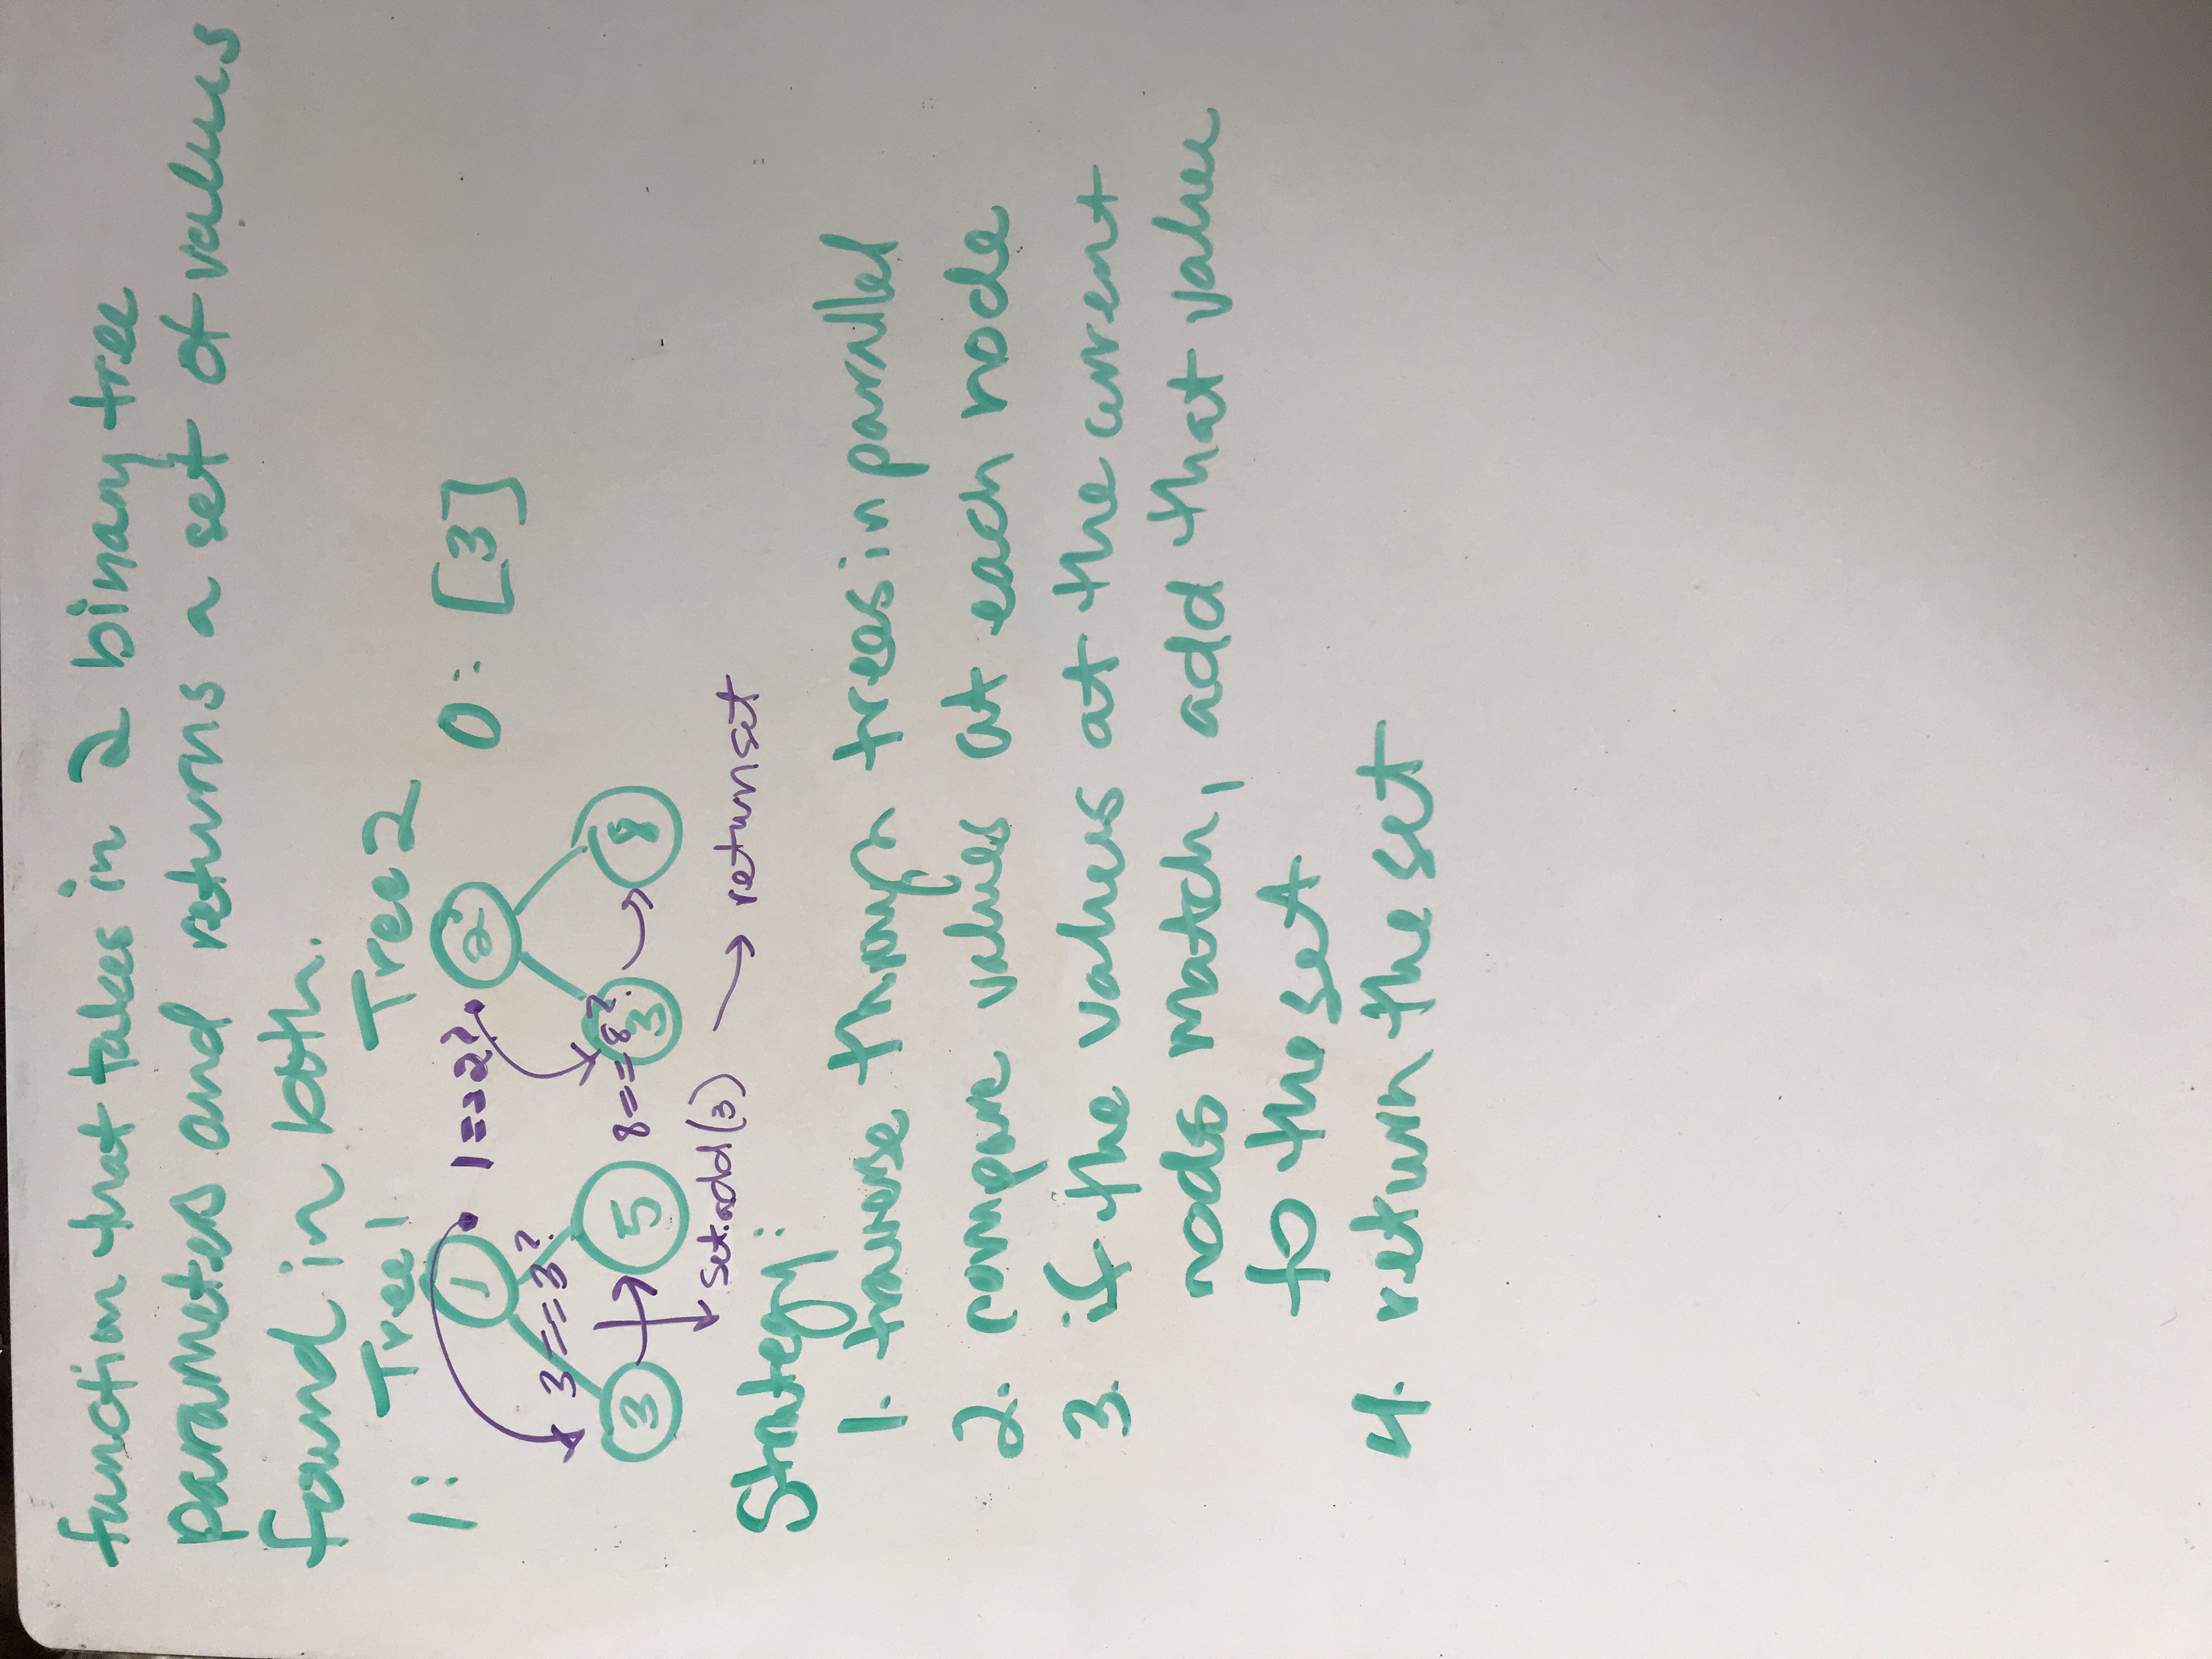 function that takes in 2 binary tree
parameters and returns a set of values
found in both.
Tree 1 Tree 2
1: 1 1==2? 2 0: [3]
3==3?
3 5 8==8? 3 8
set.add(3) return set
Strategy:
1. traverse through trees in parallel
2. compare values at each node
3. if the values at the current
nods match, add that value
to the set
4. return the set